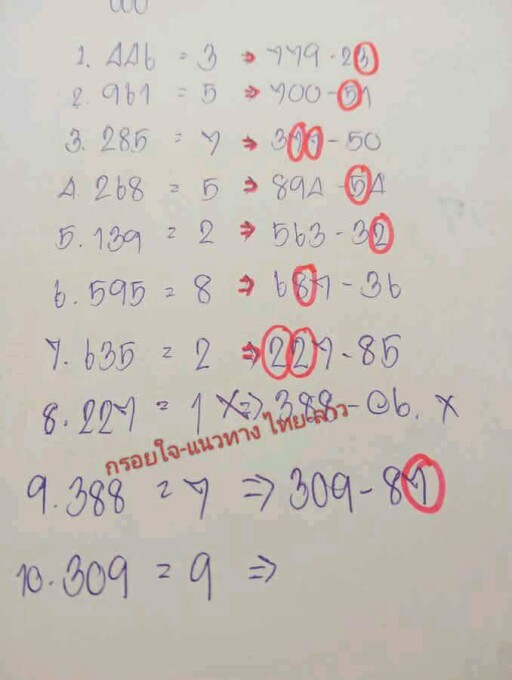 1. 446 = 3 → 779 - 23
2. 961 = 5 → 700 - 51
3. 285 = 7 → 377 - 50
4. 268 = 5 → 894 - 54
5. 139 = 2 → 563 - 32
6. 595 = 8 → 687 - 36
7. 635 = 2 ⇒ 227 - 85
8. 227 = 1 X ⇒ 388 - 06. X
กรอยใจ-แนวทาง ไทย-ลาว
9. 388 = 7 ⇒ 309 - 87
10. 309 = 9 ⇒